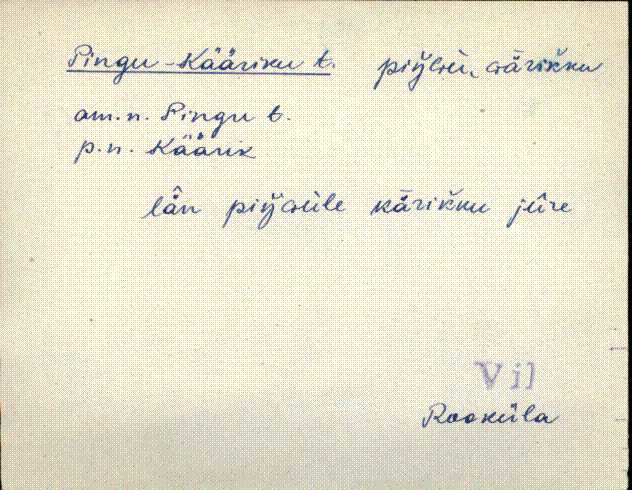 Pingu-Kääriku t. piŋ̆Gù, Gärik̆ku
am.n. Pingu t.
p.n. Käärik
lä̂n piŋ̆Gùle kärik̆ku jûre
Vil
Rooküla